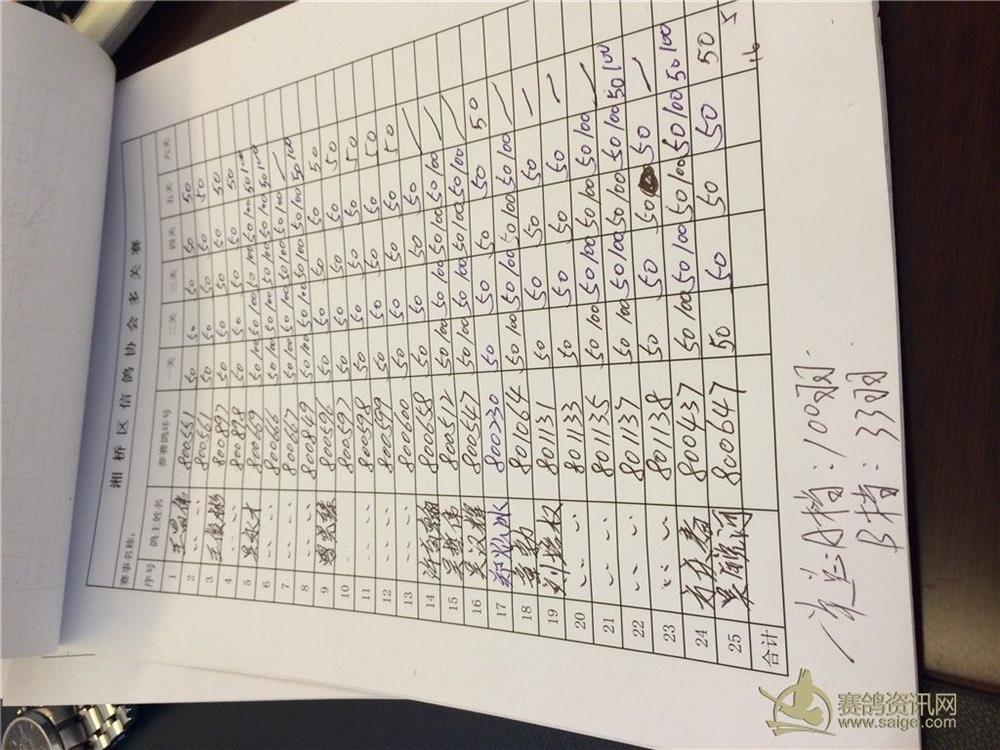 湘桥区信鸽协会多关赛
赛事名称:
序号 鸽主姓名 参赛鸽环号 一关 二关 三关 四关 五关 六关
1 800551 50 50 50 50 50
2 〃 800561 50 50 50 50 50
3 800897 50 50 50 50 50
4 〃 800898 50 50 50 50 50
5 800669 50 100 50 100 50 100 50 100 50 100
6 〃 800666 50 100 50 100 50 100 50 100 50 100
7 〃 800667 50 100 50 100 50 100 50 100
8 〃 800849 50 100 50 100 50 100 50 100 50 100
9 800596 50 50 50 50 50
10 800597 50 50 50 50 50
11 〃 800598 50 50 50 50 50
12 〃 800599 50 50 50 50 50
13 〃 800600 50 50 50 50
14 800658 50 100 50 100 50 100 50 100
15 800512 50 100 50 100 50 100 50 100
16 吴汉辉 800547 50 100 50 100 50 100 50 100
17 800230 50 50 50 50 50
18 801064 50 100 50 100 50 100 50 100
19 801131 50 50 50 50
20 〃 801133 50 50 50 50
21 〃 801135 50 100 50 100 50 100 50 100
22 〃 801137 50 100 50 100 50 100 50 100 50 100
23 〃 801138 50 50 50 50
24 800437 50 100 50 100 50 100 50 100 50 100
25 800647 50 50 50 50 50
合计
A档:100羽
B档:33羽
赛鸽资讯网
www.saige.com